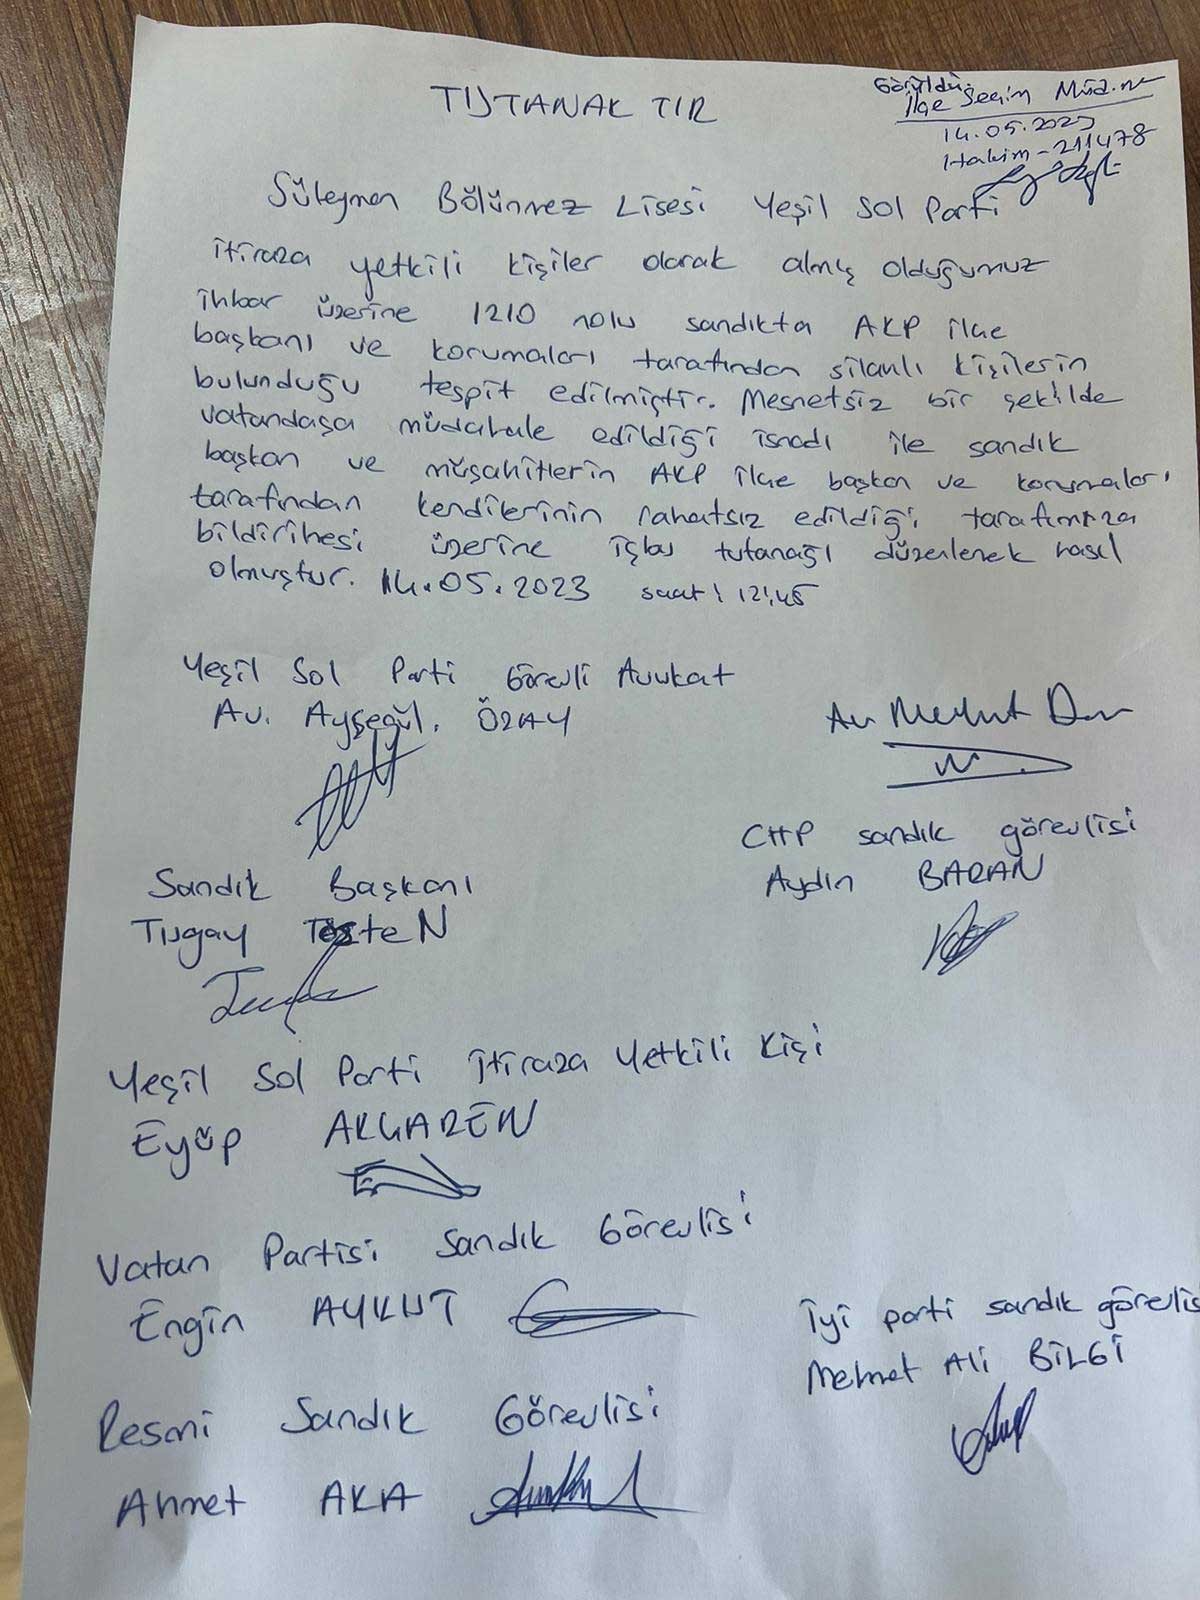 TUTANAKTIR
Görüldü.
İlçe Seçim Müd.ne
14.05.2023
Hakim-211478
Süleyman Bölünmez Lisesi Yeşil Sol Parti
itiraza yetkili kişiler olarak almış olduğumuz
ihbar üzerine 1210 nolu sandıkta AKP ilçe
başkanı ve korumaları tarafından silahlı kişilerin
bulunduğu tespit edilmiştir. Mesnetsiz bir şekilde
vatandaşa müdahale edildiği isnadı ile sandık
başkan ve müşahitlerin AKP ilçe başkan ve korumaları
tarafından kendilerinin rahatsız edildiği tarafımıza
bildirilmesi üzerine işbu tutanağı düzenlemek hasıl
olmuştur. 14.05.2023 saat: 12:45
Yeşil Sol Parti Görevli Avukat
Av. Ayşegül. ÖZAY
Av Mevlut
CHP sandık görevlisi
Aydın BARAN
Sandık Başkanı
Tugay
Yeşil Sol Parti İtiraza Yetkili Kişi
Eyüp
Vatan Partisi Sandık Görevlisi
Engin AYKUT
İyi parti sandık görevlis
Mehmet Ali BİLGİ
Resmi Sandık Görevlisi
Ahmet AKA